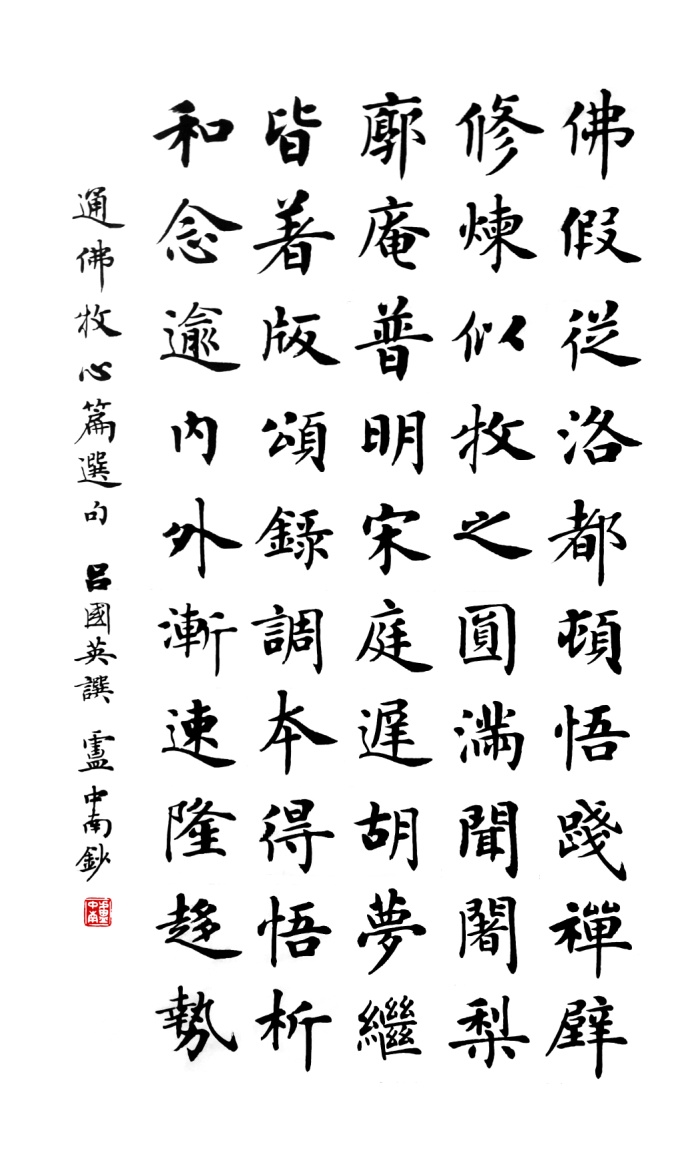 佛假從洛都頓悟踐禪壁
修煉似牧之圓滿聞闍梨
廓庵普明宋庭遲胡夢繼
皆著版頌錄調本得悟析
和念逾内外漸速隆趍勢
通佛牧心篇選句 吕國英譔 盧中南鈔